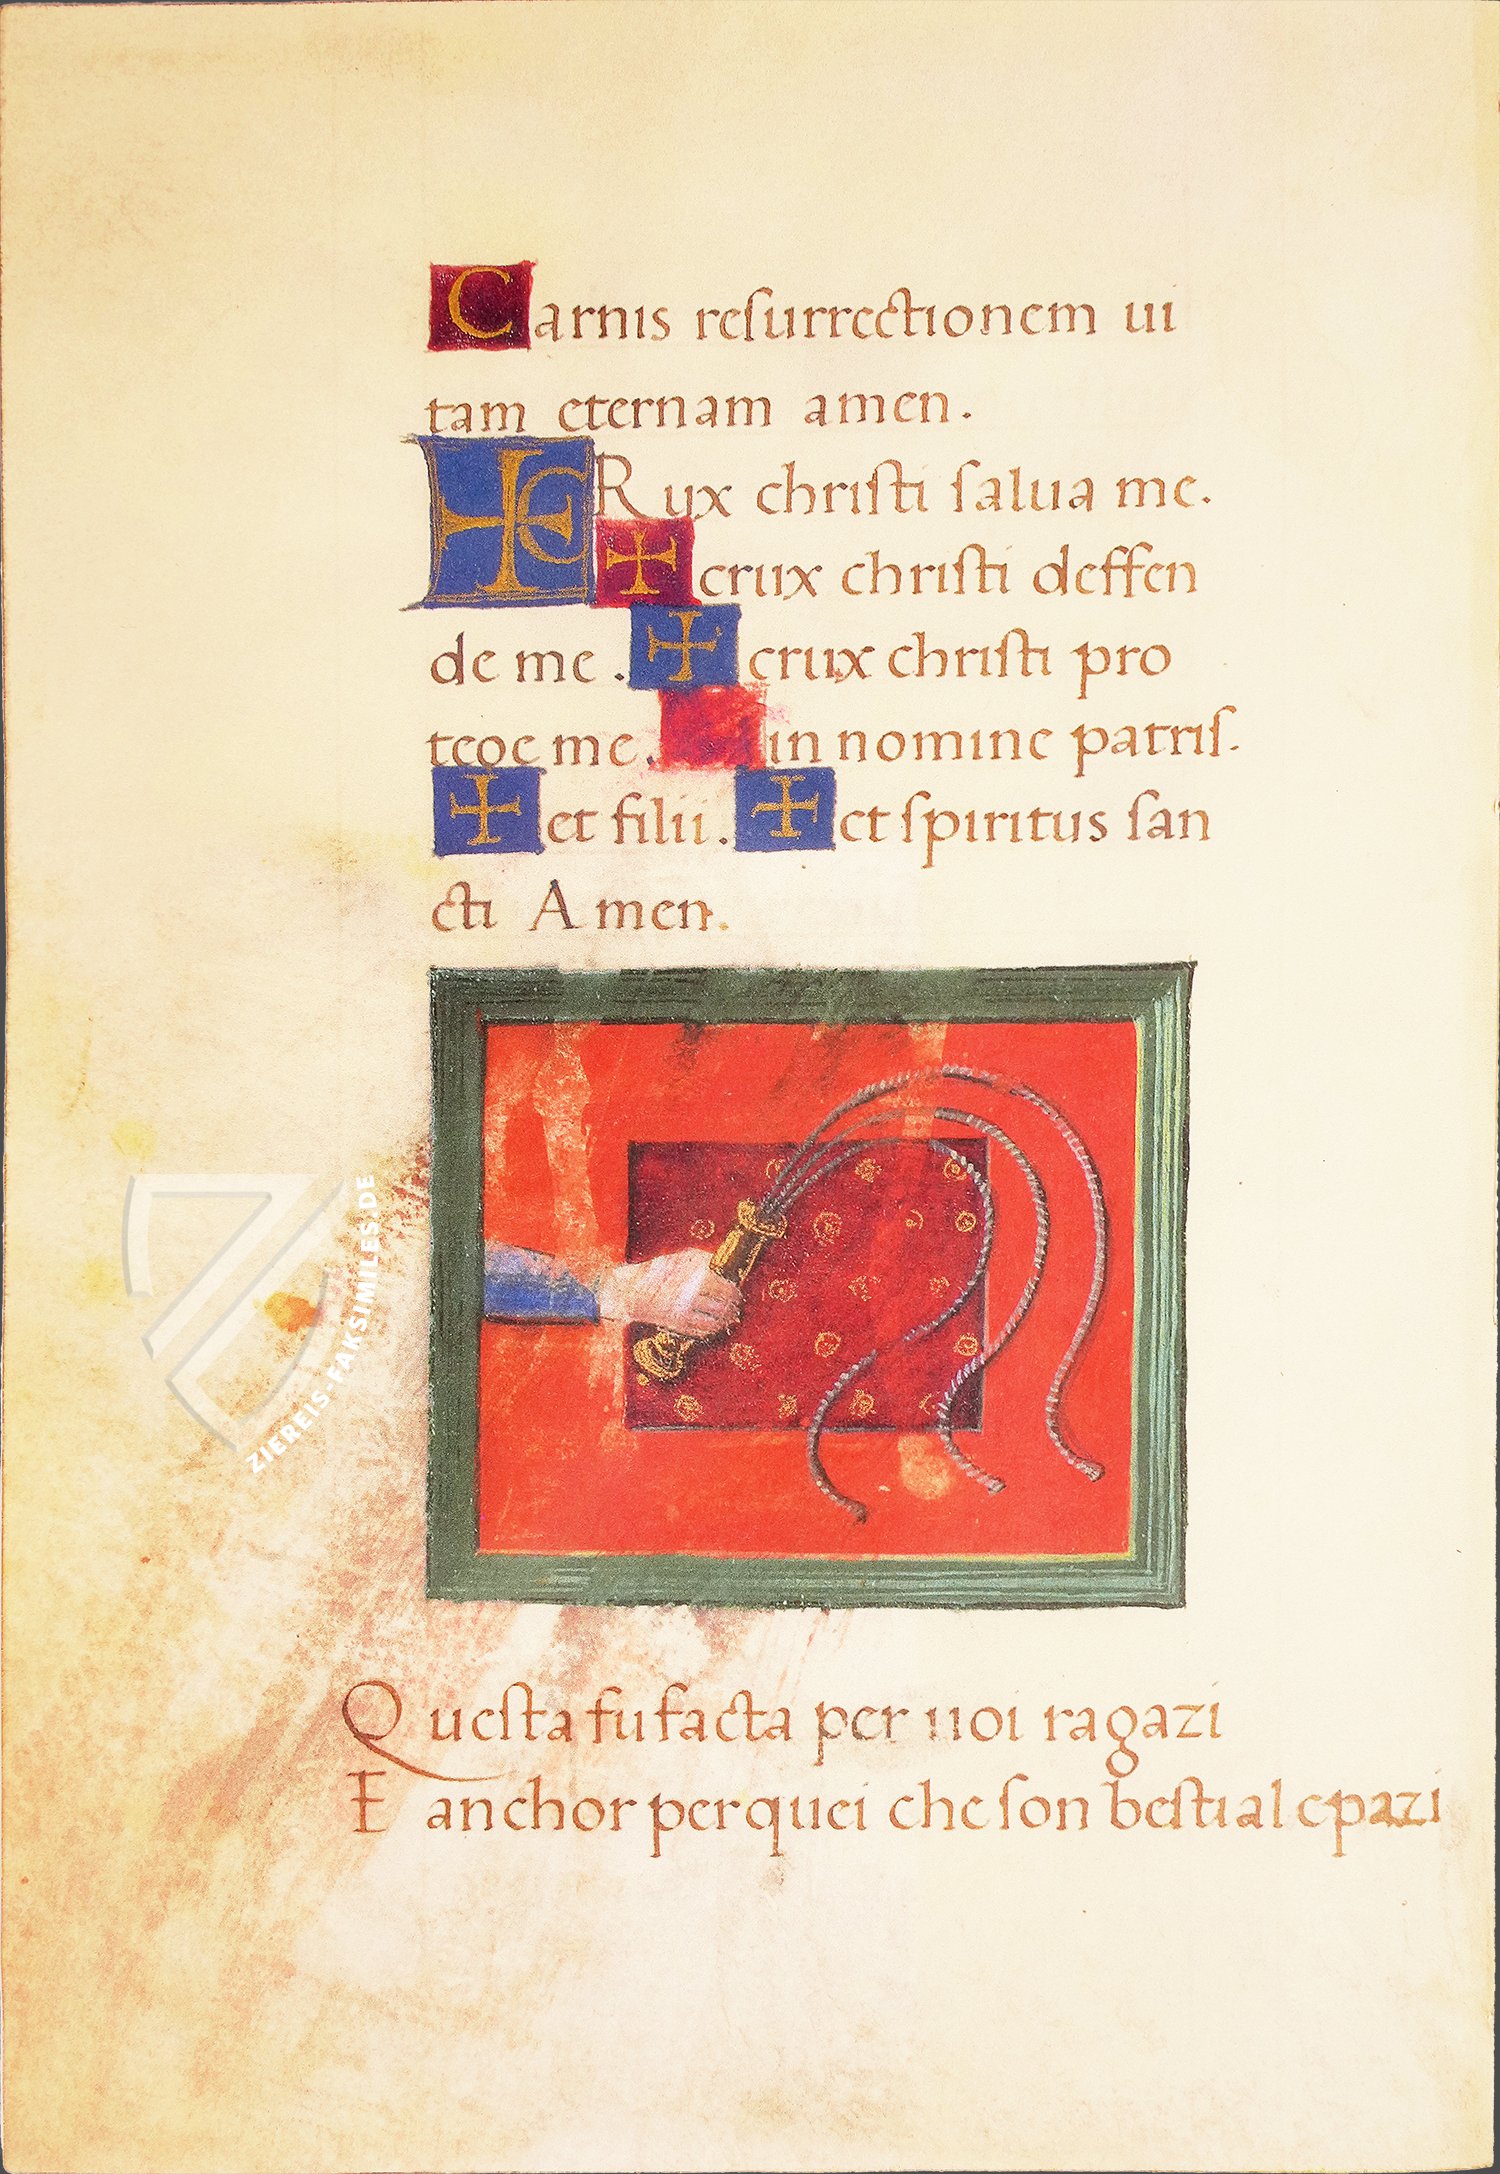 Carnis resurrectionem ui
tam eternam amen.
✠ CRux christi salua me.
✠ crux christi deffen
de me. ✠ crux christi pro
tege me. in nomine patris.
✠ et filii. ✠ et spiritus san
cti Amen.
Questa fu facta per uoi ragazi
E anchor per quei che son bestial e pazi
ZIEREIS-FAKSIMILES.DE